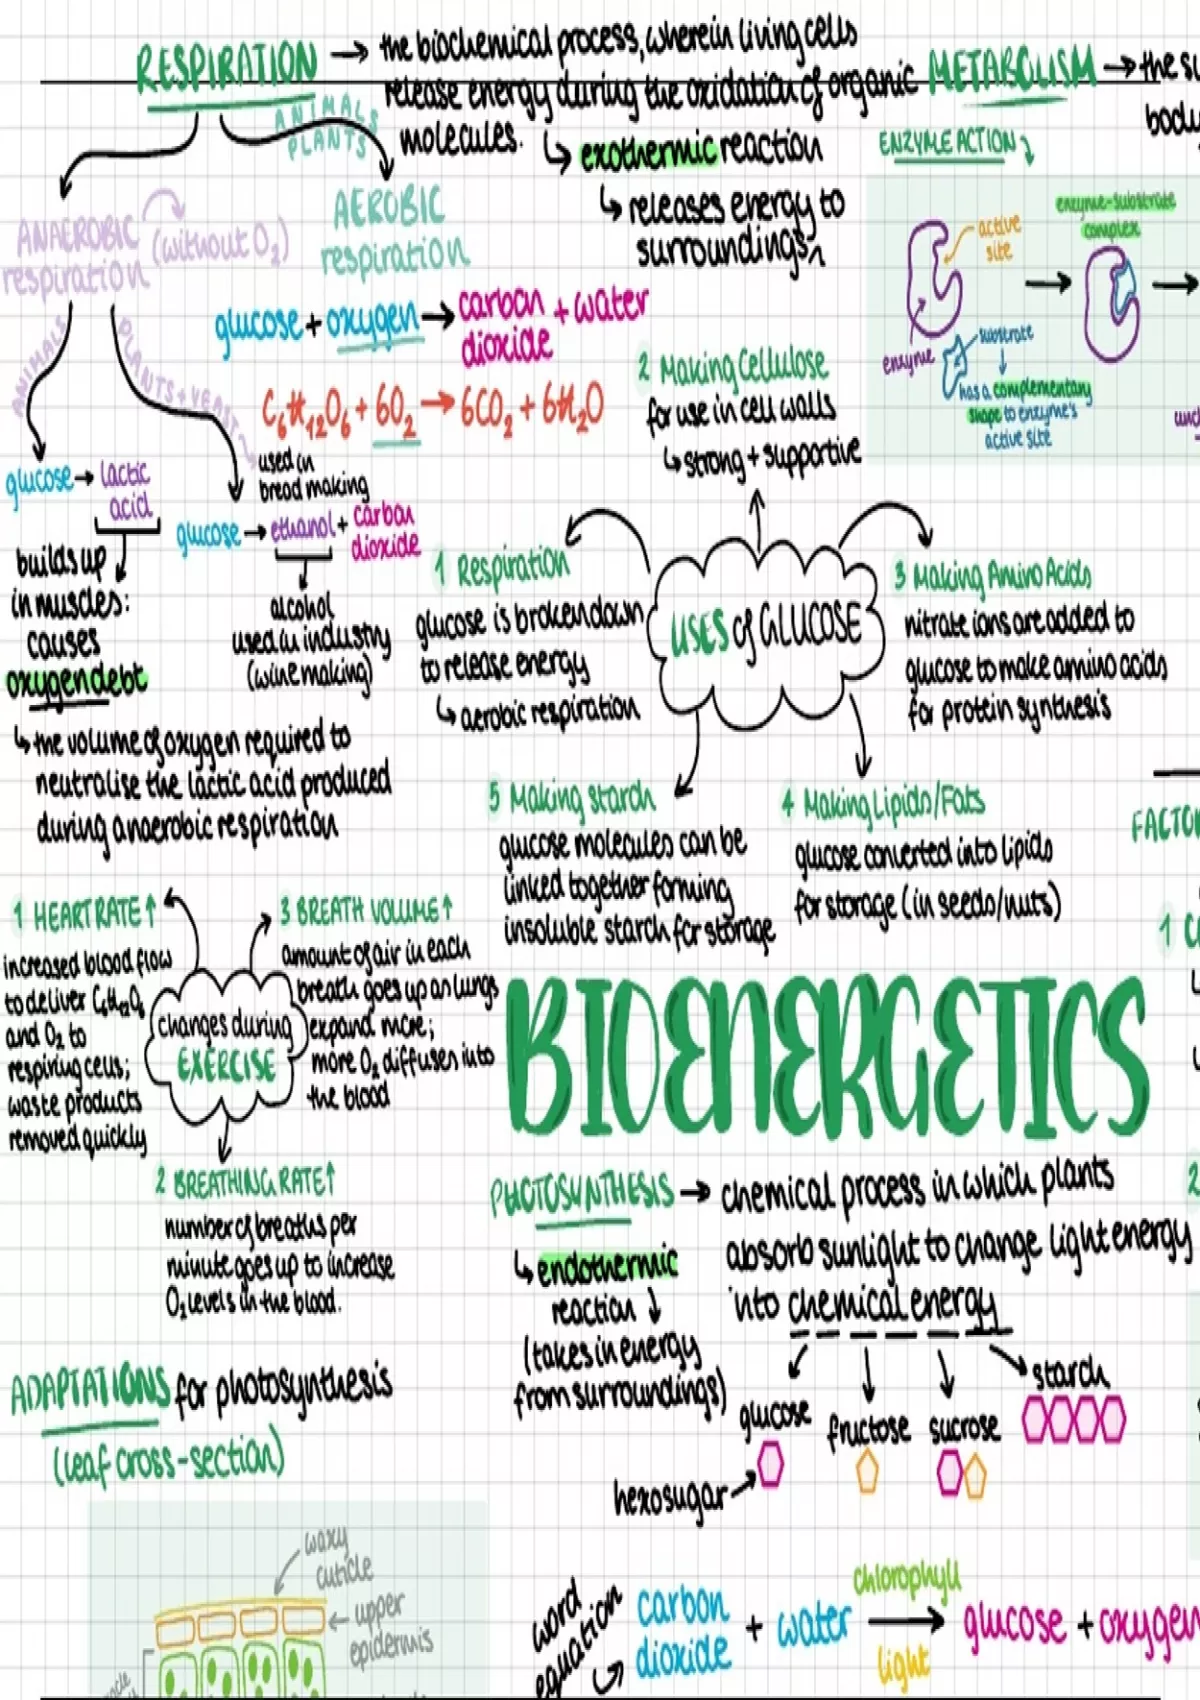 RESPIRATION → the biochemical process, wherein living cells
release energy during the oxidation of organic
molecules.
↳ exothermic reaction
↳ releases energy to
surroundings
ANIMALS
PLANTS
ANAEROBIC
respiration
(without O₂)
AEROBIC
respiration
glucose + oxygen → carbon
dioxide
+ water
C₆H₁₂O₆ + 6O₂ → 6CO₂ + 6H₂O
ANIMALS
PLANTS + YEAST
glucose → lactic
acid
builds up
in muscles:
causes
oxygen debt
↳ the volume of oxygen required to
neutralise the lactic acid produced
during anaerobic respiration
used in
bread making
glucose → ethanol + carbon
dioxide
alcohol
used in industry
(wine making)
METABOLISM → the su
body
ENZYME ACTION
active
site
enzyme
substrate
has a complementary
shape to enzyme's
active site
enzyme-substrate
complex
USES of GLUCOSE
1 Respiration
glucose is broken down
to release energy
↳ aerobic respiration
2 Making Cellulose
for use in cell walls
↳ strong + supportive
3 Making Amino Acids
nitrate ions are added to
glucose to make amino acids
for protein synthesis
4 Making Lipids/Fats
glucose converted into lipids
for storage (in seeds/nuts)
5 Making starch
glucose molecules can be
linked together forming
insoluble starch for storage
FACTOR
1 C
2
changes during
EXERCISE
1 HEART RATE ↑
increased blood flow
to deliver C₆H₁₂O₆
and O₂ to
respiring cells;
waste products
removed quickly
3 BREATH VOLUME ↑
amount of air in each
breath goes up as lungs
expand more;
more O₂ diffuses into
the blood
2 BREATHING RATE ↑
number of breaths per
minute goes up to increase
O₂ levels in the blood.
BIOENERGETICS
PHOTOSYNTHESIS → chemical process in which plants
absorb sunlight to change light energy
into chemical energy
↳ endothermic
reaction ↓
(takes in energy
from surroundings)
glucose
fructose
sucrose
starch
hexosugar
ADAPTATIONS for photosynthesis
(leaf cross-section)
waxy
cuticle
upper
epidermis
word
equation
carbon
dioxide
+ water
chlorophyll
light
glucose + oxygen